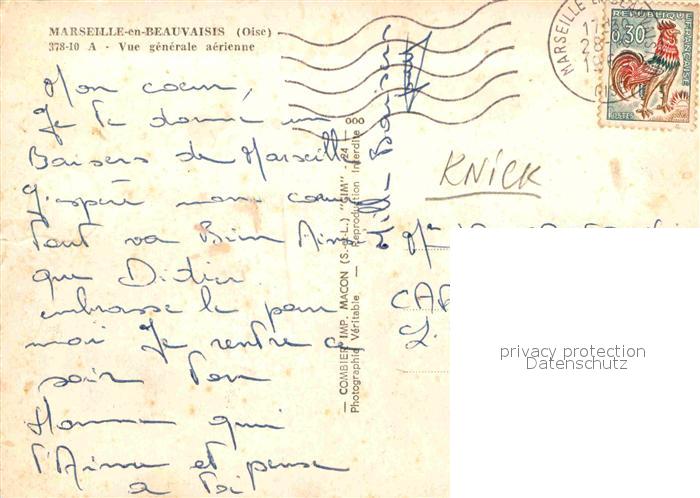 MARSEILLE-en-BEAUVAISIS (Oise)
378-10 A - Vue générale aérienne
Mon cœur,
Je te donne un
Baisers de Marseille
J'espère mon cœur
Tout va Bien Ainsi
que Didier
embrasse le pour
moi Je rentre ce
soir Ton
Homme qui
t'Aime et pense
a Toi
Mille Baisers
— COMBIER IMP. MACON (S.-et-L.) "CIM" - 24 - 000
Photographie Véritable — Reproduction Interdite
KNICK
MARSEILLE EN BEAUVAISIS
OISE
REPUBLIQUE FRANÇAISE
0,30
POSTES
privacy protection
Datenschutz